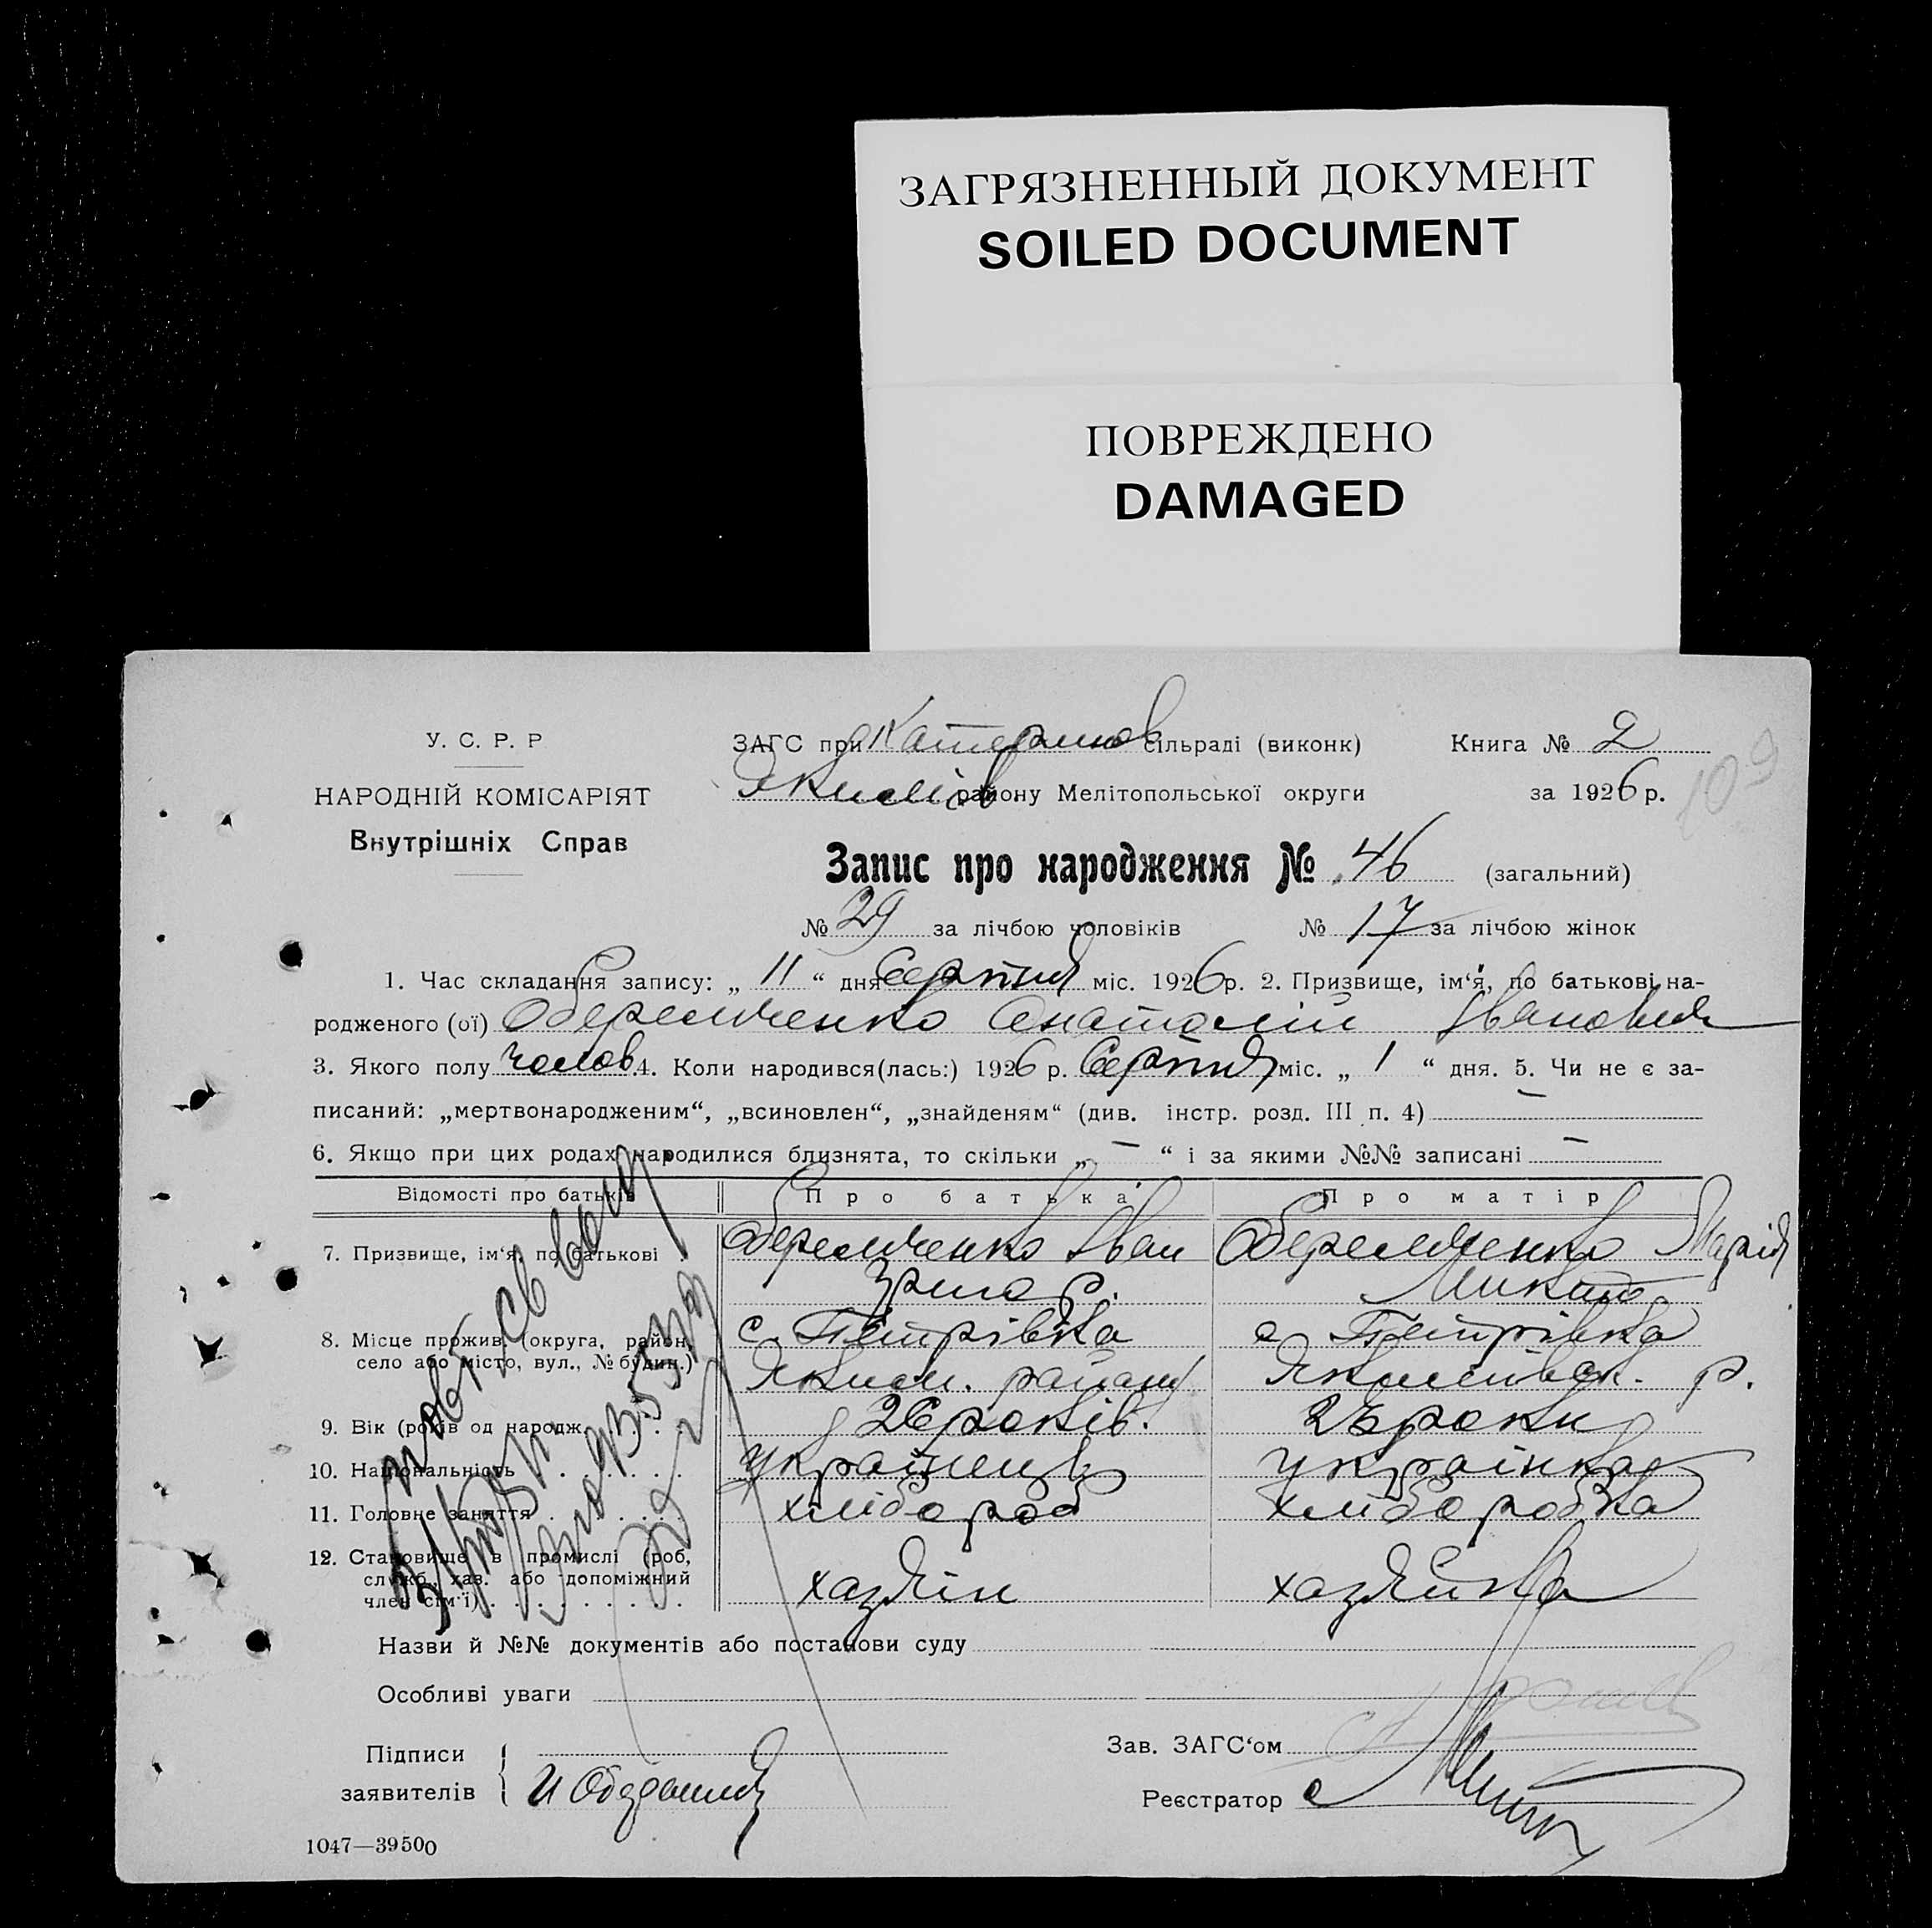 ЗАГРЯЗНЕННЫЙ ДОКУМЕНТ
SOILED DOCUMENT
ПОВРЕЖДЕНО
DAMAGED
У. С. Р. Р
НАРОДНІЙ КОМІСАРІЯТ
Внутрішніх Справ
ЗАГС при Катеринов сільраді (виконк) Книга № 2
Якимів району Мелітопольської округи за 1926 р.
109
Запис про народження № 46 (загальний)
№ 29 за лічбою чоловіків № 17 за лічбою жінок
1. Час складання запису: „ 11 “ дня Серпня міс. 1926 р. 2. Призвище, ім‘я, по батькові на-
родженого (ої) Оберемченко Анатолій Іванович
3. Якого полу чолов. 4. Коли народився(лась:) 1926 р. Серпня міс. „ 1 “ дня. 5. Чи не є за-
писаний: „мертвонародженим“, „всиновлен“, „знайденям“ (див. інстр. розд. III п. 4) —
6. Якщо при цих родах народилися близнята, то скільки „ — “ і за якими №№ записані —
Відомості про батьків Про батька Про матір
7. Призвище, ім‘я, по батькові Оберемченко Іван Оберемченко Марія
Григор. Микит
8. Місце прожив. (округа, район, с. Петрівка с Петрівка
село або місто, вул., № будин.) Яким. району Якимівськ. р.
9. Вік (років од народж. 26 років. роки
10. Національність українець українка
11. Головне заняття хлібороб хліборобка
12. Становище в промислі (роб,
служб., хаз. або допоміжний хазяїн хазяйка
член сім‘ї)
Назви й №№ документів або постанови суду
Особливі уваги
Підписи Зав. ЗАГС‘ом
заявителів Реєстратор
1047—39500